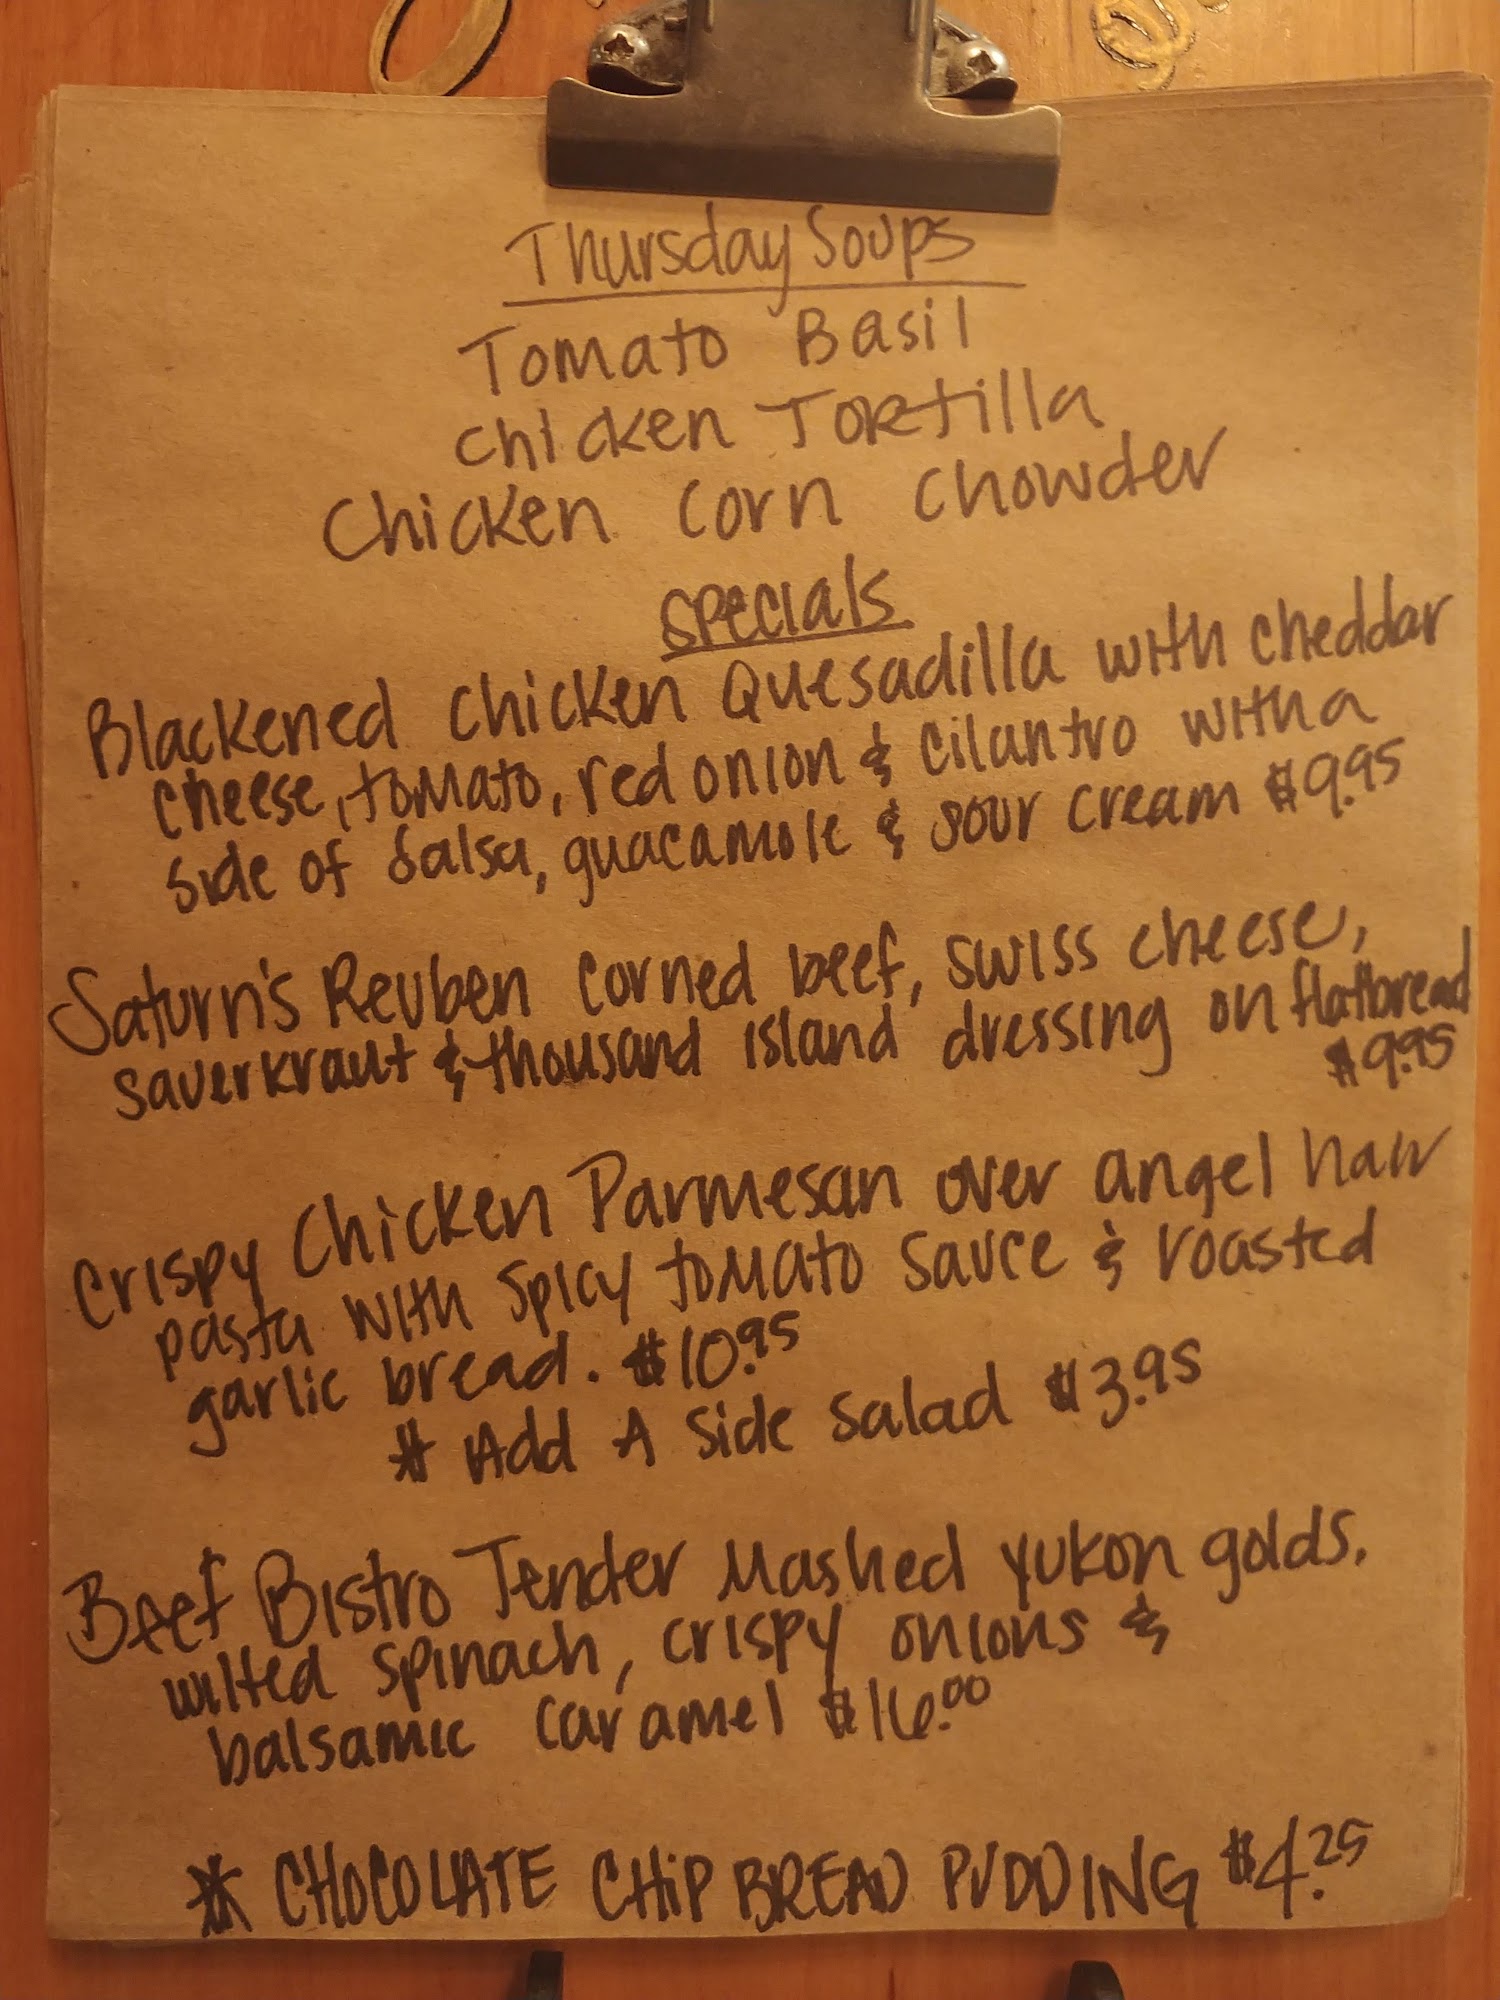 Thursday Soups
Tomato Basil
Chicken Tortilla
Chicken Corn Chowder
Specials
Blackened Chicken Quesadilla with cheddar
cheese, tomato, red onion & cilantro with a
side of salsa, guacamole & sour cream $9.95
Saturn's Reuben corned beef, swiss cheese,
sauerkraut & thousand island dressing on flatbread
$9.95
Crispy Chicken Parmesan over angel hair
pasta with spicy tomato sauce & roasted
garlic bread. $10.95
* Add A side salad $3.95
Beef Bistro Tender Mashed yukon golds,
wilted spinach, crispy onions &
balsamic caramel $16.00
* CHOCOLATE CHIP BREAD PUDDING $4.25